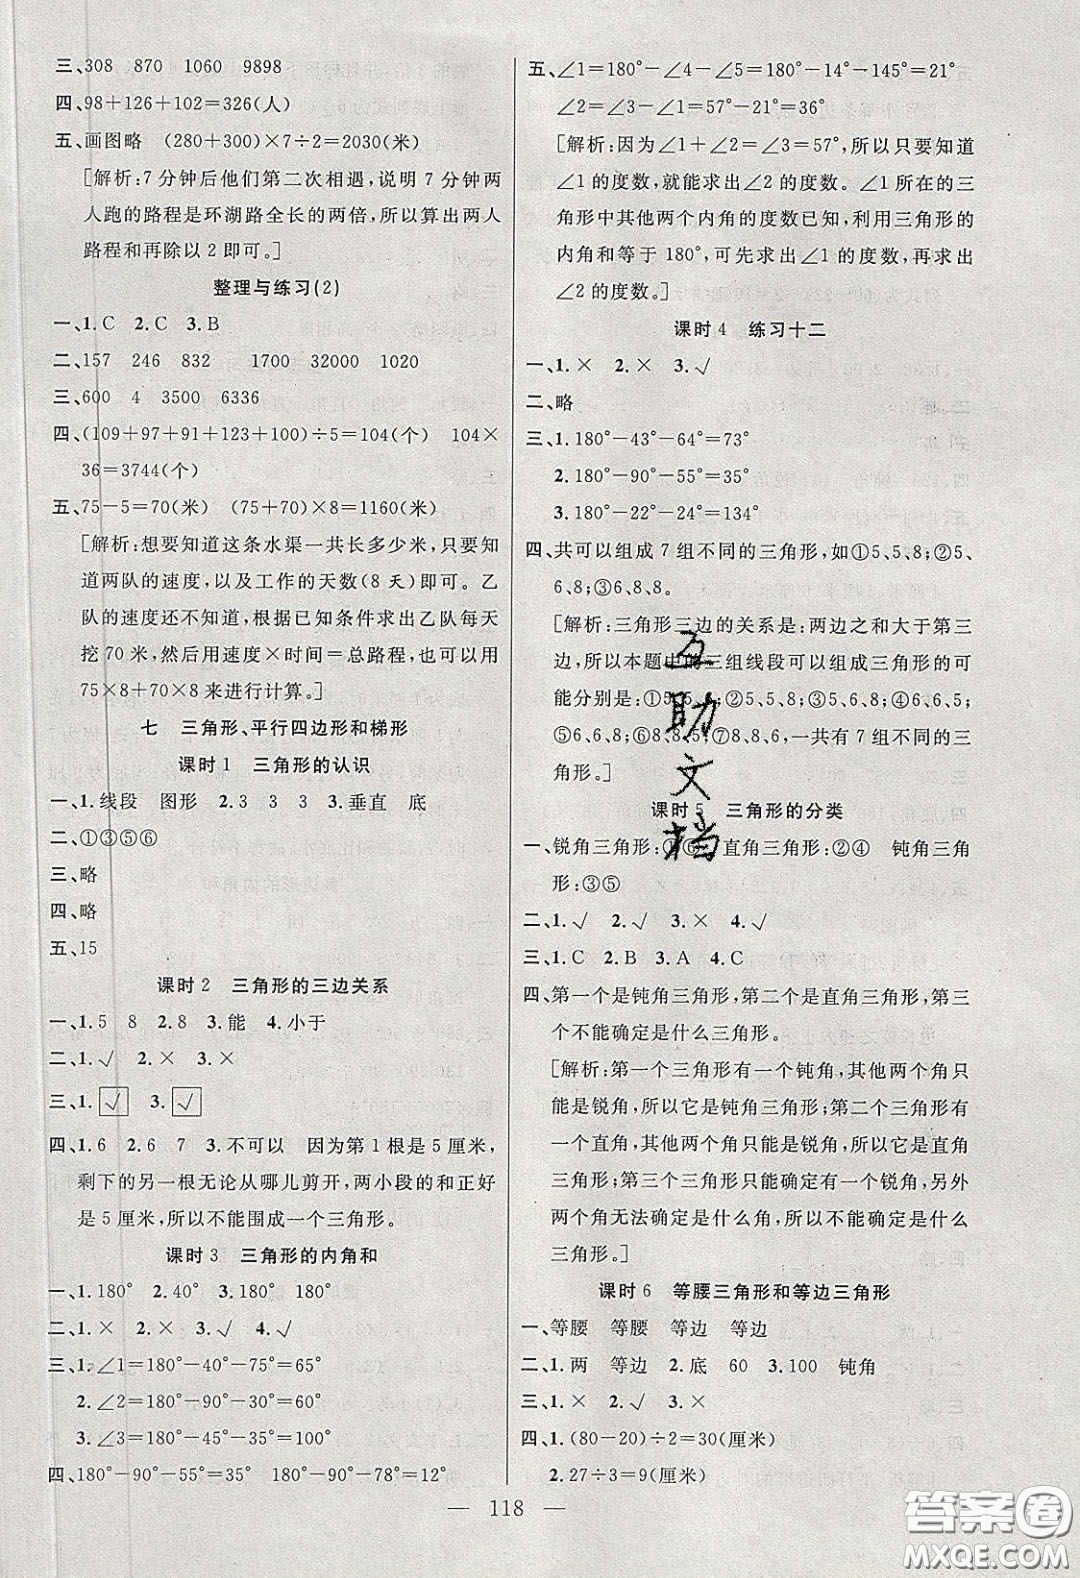 三、308　870　1060　9898
四、98+126+102=326(人)
五、画图略　(280+300)×7÷2=2030(米)
[解析:7分钟后他们第二次相遇,说明7分钟两
人跑的路程是环湖路全长的两倍,所以算出两人
路程和再除以2即可。]
整理与练习(2)
一、1.C　2.C　3.B
二、157　246　832　1700　32000　1020
三、600　4　3500　6336
四、(109+97+91+123+100)÷5=104(个)　104×
36=3744(个)
五、75-5=70(米)　(75+70)×8=1160(米)
[解析:想要知道这条水渠一共长多少米,只要知
道两队的速度,以及工作的天数(8天)即可。乙
队的速度还不知道,根据已知条件求出乙队每天
挖70米,然后用速度×时间=总路程,也可以用
75×8+70×8来进行计算。]
七　三角形、平行四边形和梯形
课时1　三角形的认识
一、1.线段　图形　2.3　3　3　3.垂直　底
二、①③⑤⑥
三、略
四、略
五、15
课时2　三角形的三边关系
一、1.5　8　2.8　3.能　4.小于
二、1.√　2.×　3.×
三、1.√　3.√
四、1.6　2.6　7　3.不可以　因为第1根是5厘米,
剩下的另一根无论从哪儿剪开,两小段的和正好
是5厘米,所以不能围成一个三角形。
课时3　三角形的内角和
一、1.180°　2.40°　3.180°　180°　180°
二、1.×　2.×　3.√　4.√
三、1.∠1=180°-40°-75°=65°
2.∠2=180°-90°-30°=60°
3.∠3=180°-55°-25°=100°
四、180°-90°-55°=35°　180°-90°-78°=12°
五、∠1=180°-∠4-∠5=180°-14°-145°=21°
∠2=∠3-∠1=57°-21°=36°
[解析:因为∠1+∠2=∠3=57°,所以只要知道
∠1的度数,就能求出∠2的度数。∠1所在的三
角形中其他两个内角的度数已知,利用三角形的
内角和等于180°,可先求出∠1的度数,再求出
∠2的度数。]
课时4　练习十二
一、1.×　2.×　3.√
二、略
三、1.180°-43°-64°=73°
2.180°-90°-55°=35°
3.180°-22°-24°=134°
四、共可以组成7组不同的三角形,如①5、5、8;②5、
6、8;③6、8、8。
[解析:三角形三边的关系是:两边之和大于第三
边,所以本题中的三组线段可以组成三角形的可
能分别是:①5、5、6;②5、5、8;③5、6、8;④6、6、5;
⑤6、6、8;⑥8、8、5;⑦8、8、6,一共有7组不同的三
角形。]
课时5　三角形的分类
一、锐角三角形:①⑥　直角三角形:②④　钝角三角
形:③⑤
二、1.√　2.√　3.×　4.√
三、1.C　2.B　3.A　4.C
四、第一个是钝角三角形,第二个是直角三角形,第三
个不能确定是什么三角形。
[解析:第一个三角形有一个钝角,其他两个角只
能是锐角,所以是钝角三角形;第二个三角形有
一个直角,其他两个角只能是锐角,所以是直角
三角形;第三个三角形只能确定有一个锐角,另外
两个角无法确定是什么角,所以不能确定是什么
三角形。]
课时6　等腰三角形和等边三角形
一、等腰　等腰　等边　等边
二、1.两　等边　2.底　60　3.100　钝角
三、1.×　2.√　3.×
四、1.(80-20)÷2=30(厘米)
2.27÷3=9(厘米)
— 118 —
互助文档
答案圈
MXQE.COM